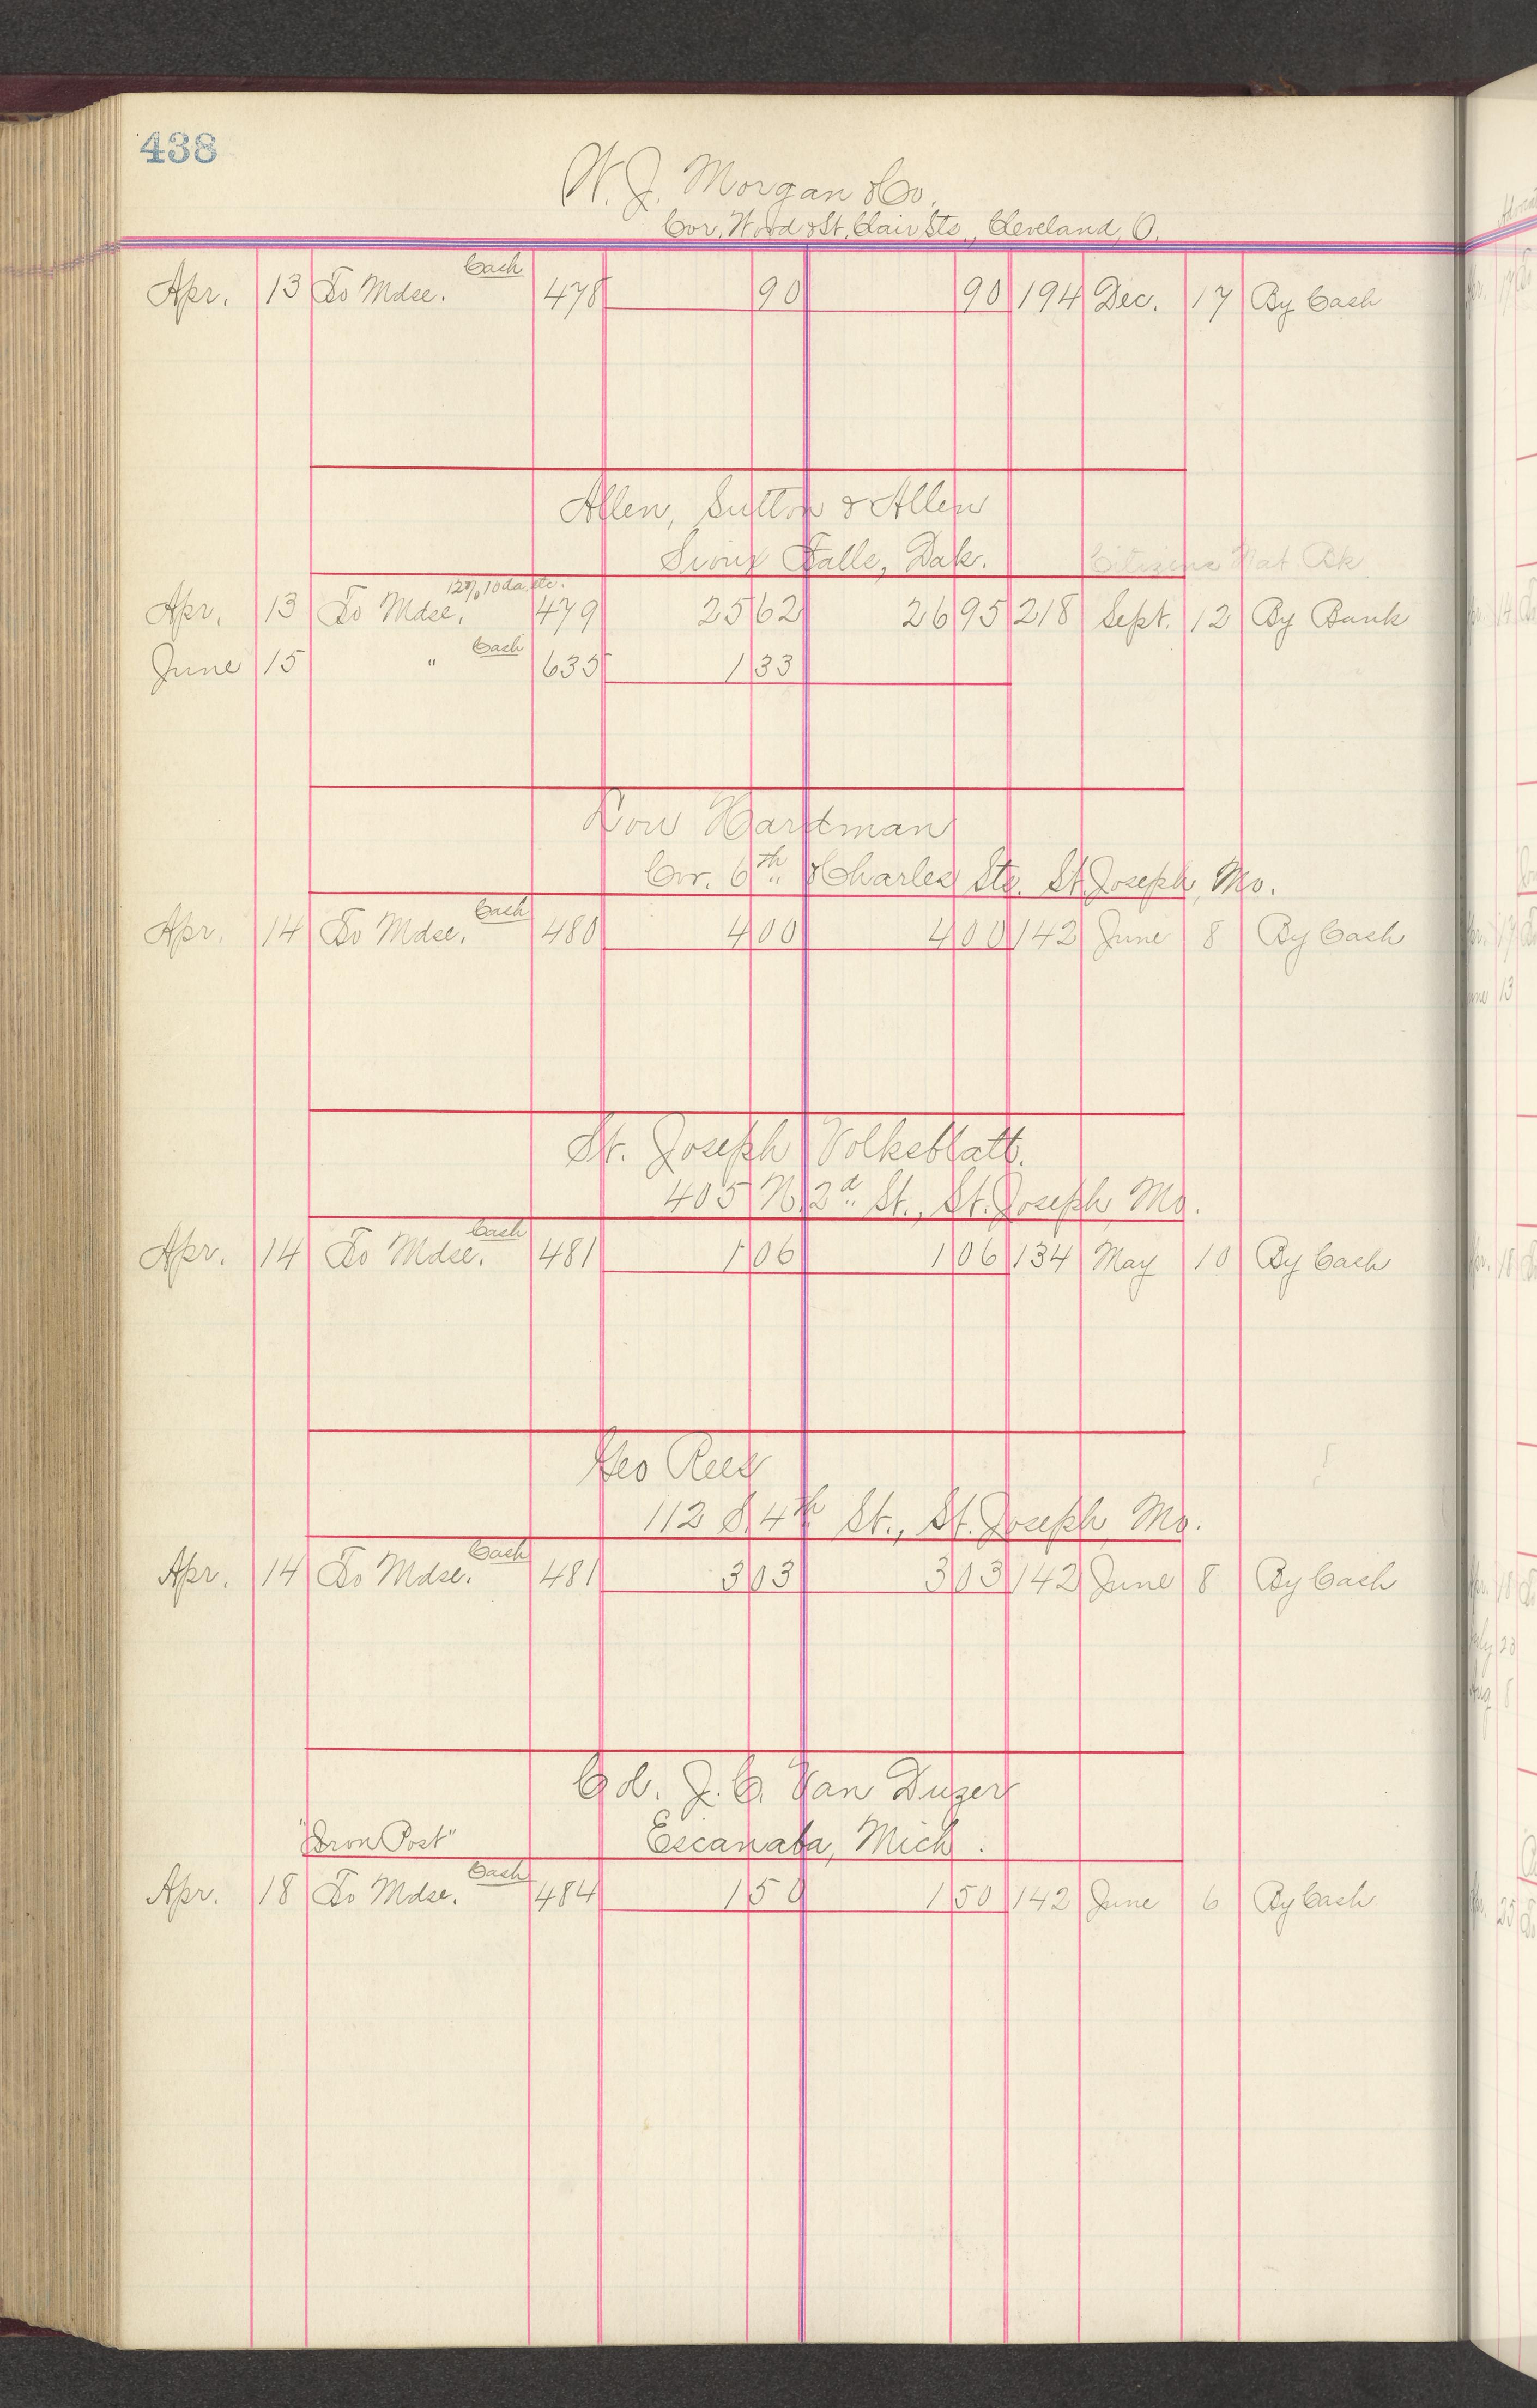 438
W. J. Morgan & Co.
Cor. Wood & St. Clair Sts., Cleveland, O.
Cash
Apr. 13 To Mdse. 478 90 90 194 Dec. 17 By Cash
Allen, Sutton & Allen
Sioux Falls, Dak. Citizens Nat Bk
12%, 10 da. etc.
Apr. 13 To Mdse. 479 25 62 26 95 218 Sept. 12 By Bank
Cash
June 15 " 635 1 33
Low Hartman
Cor. 6th & Charles Sts. St. Joseph, Mo.
Cash
Apr. 14 To Mdse. 480 4 00 4 00 142 June 8 By Cash
St. Joseph Volksblatt.
405 N. 2d St., St. Joseph, Mo.
Cash
Apr. 14 To Mdse. 481 1 06 1 06 134 May 10 By Cash
Geo Rees
112 S. 4th St., St. Joseph, Mo.
Cash
Apr. 14 To Mdse. 481 3 03 3 03 142 June 8 By Cash
Col. J. C. Van Duzer
"Iron Post" Escanaba, Mich.
Cash
Apr. 18 To Mdse. 484 1 50 1 50 142 June 6 By Cash